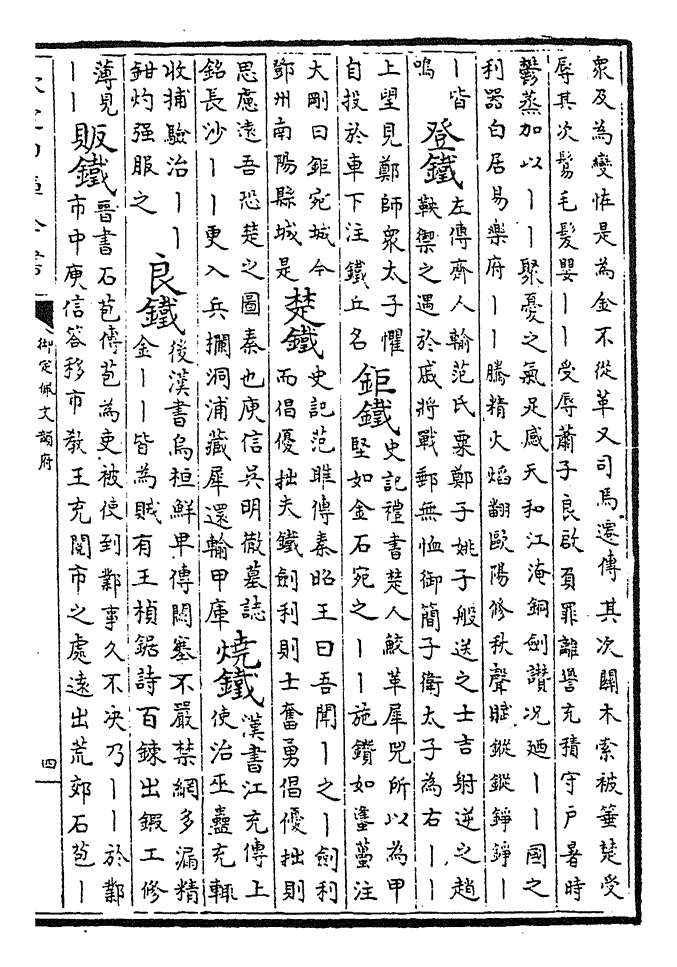 衆及為變怪是為金不從革又司馬遷傳其次關木索被箠楚受
辱其次鬄毛髮嬰丨丨受辱蕭子良啟頁罪離訾充積守戶暑時
鬱蒸加以丨丨聚憂之氣足感天和江淹銅劍讚况廼丨丨國之
利器白居易樂府丨丨騰精火焰翻歐陽修秋聲賦鏦鏦錚錚丨
丨皆
鳴
登鐵
左傳齊人輸范氏粟鄭子姚子般送之士吉射逆之趙
鞅禦之遇於戚將戰郵無恤御簡子衛太子為右丨丨
上望見鄭師衆太子懼
自投於車下注鐵丘名
鉅鐵
史記禮書楚人鮫革犀兕所以為甲
堅如金石宛之丨丨施鑽如蠭蠆注
大剛曰鉅宛城今
鄧州南陽縣城是
楚鐵
史記范雎傳秦昭王曰吾聞丨之丨劍利
而倡優拙夫鐵劍利則士奮勇倡優拙則
思慮遠吾恐楚之圖秦也庾信吳明徹墓誌
銘長沙丨丨更入兵攔洞浦藏犀還輸甲庫
燒鐵
漢書江充傳上
使治巫蠱充輒
收捕驗治丨丨
鉗灼强服之
良鐵
後漢書烏桓鮮卑傳關塞不嚴禁網多漏精
金丨丨皆為賊有王楨鋸詩百鍊出鍜工修
薄見
丨丨
販鐵
晉書石苞傳苞為吏被使到鄴事久不决乃丨丨於鄴
市中庾信答移市教王充閱市之處遠出荒郊石苞丨
御定佩文韻府
四